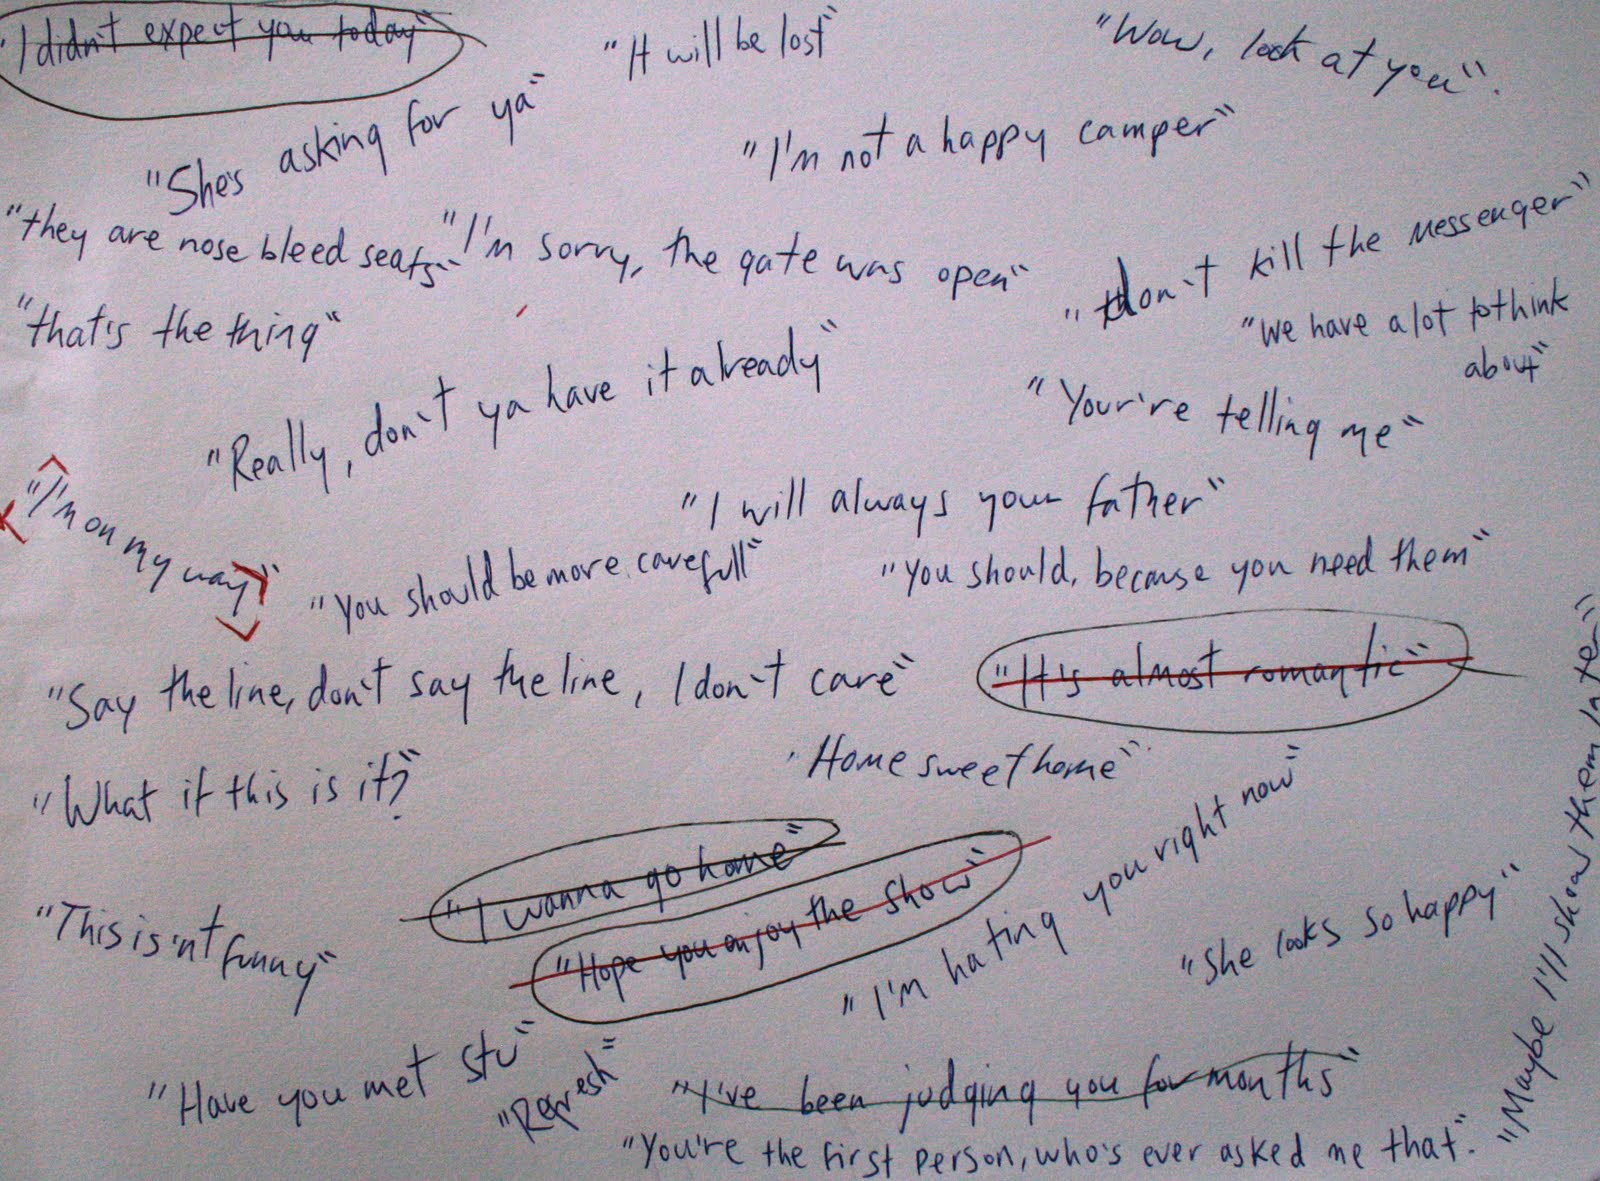 "I didn't expect you today"
"It will be lost"
"Wow, look at you".
"She's asking for ya"
"I'm not a happy camper"
"they are nose bleed seats"
"I'm sorry, the gate was open"
"don't kill the messenger"
"that's the thing"
"We have a lot to think
about"
"Really, don't ya have it already"
"Your're telling me"
"I'm on my way"
"I will always your father"
"You should be more carefull"
"You should, because you need them"
"Say the line, don't say the line, I don't care"
"It's almost romantic"
"What if this is it?"
"Home sweet home"
"I wanna go home"
"Hope you enjoy the show"
"I'm hating you right now"
"This is'nt funny"
"She looks so happy"
"Have you met stu"
"Refresh"
"I've been judging you for months"
"You're the first person, who's ever asked me that".
"Maybe I'll show them later"